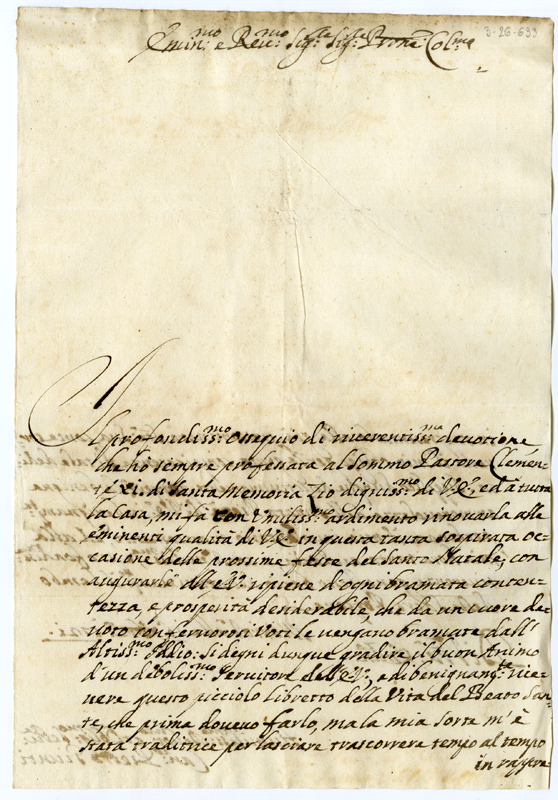 3-26-633
Emin.mo e Rev.mo Sig.re Sig.re Prone Col.mo
Il profondiss.mo ossequio di riverentiss.ma devotione
che hò sempre professata al Sommo Pastore Clemen-
te XI. di Santa Memoria Zio digniss.mo di V.E., ed à tutta
la Casa, mi fà con Umiliss.mo ardimento rinovarla alle
eminenti qualità di V.E. in questa tanto sospirata oc-
casione delle prossime feste del Santo Natale, con
augurarle all'E.V. ripiene d'ogni bramata conten-
tezza, e prosperità desiderabile, che da un cuore de-
voto con fervorosi Voti le vengano bramate dall'
Altiss.mo Iddio. Si degni dunque gradire il buon Animo
d'un deboliss.mo Servitore dell'E.V., e di benignam.te rice-
vere questo picciolo libretto della Vita del Beato San-
te, che prima dovevo farlo, ma la mia sorte m'è
stata traditrice per lasciare trascorrere tempo al tempo